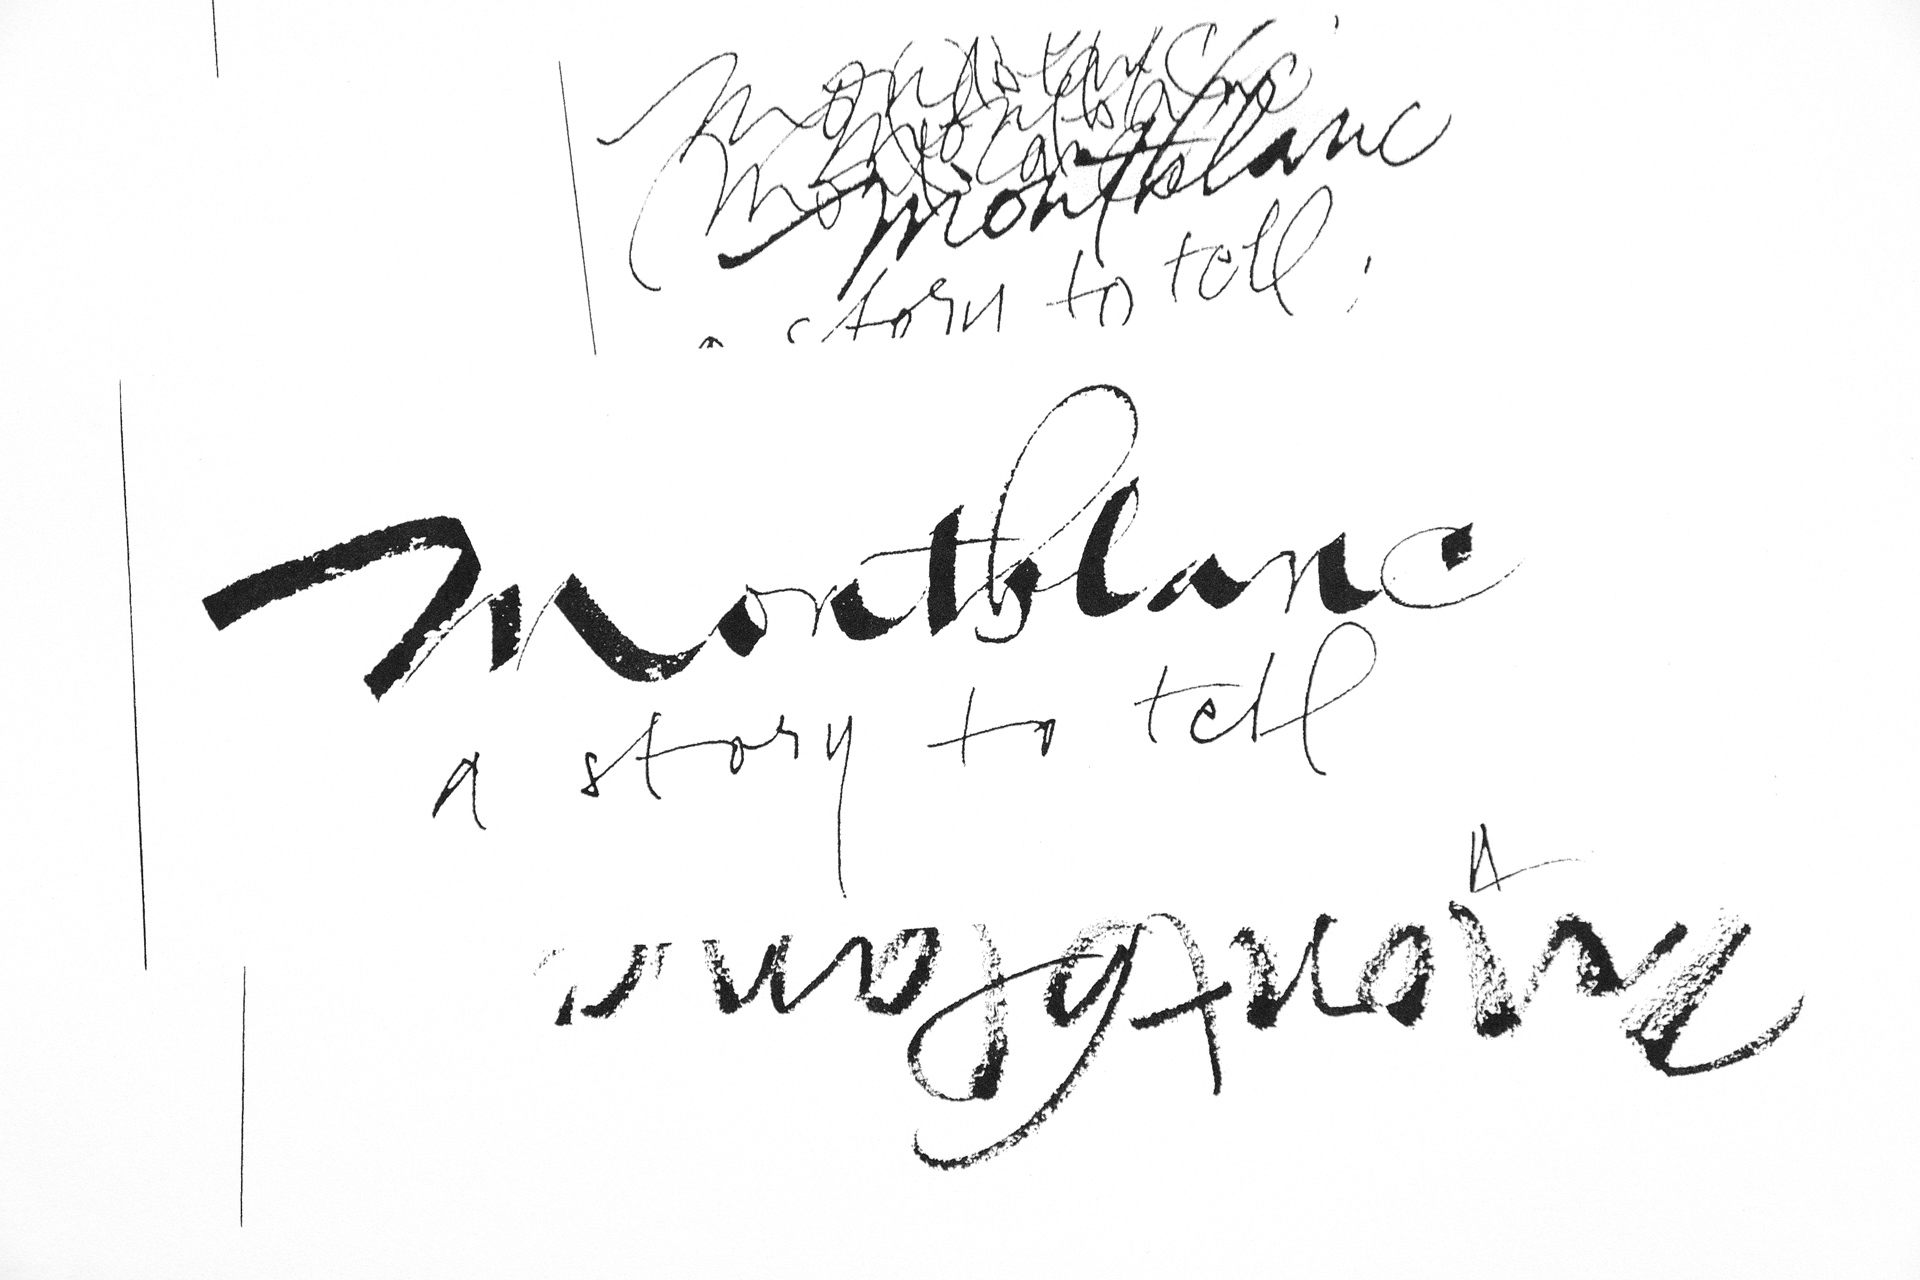 Montblanc
a story to tell
Montblanc
a story to tell
Montblanc